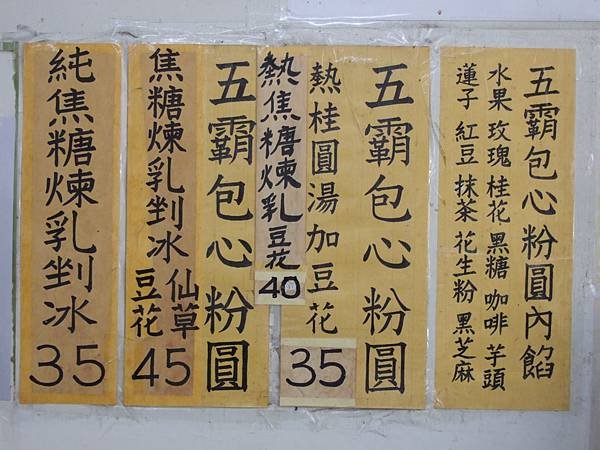 五霸包心粉圓內餡
水果 玫瑰 桂花 黑糖 咖啡 芋頭
蓮子 紅豆 抹茶 花生粉 黑芝麻
五霸包心粉圓
熱桂圓湯加豆花
35
熱焦糖煉乳豆花
40
五霸包心粉圓
焦糖煉乳剉冰
仙草
豆花
45
純焦糖煉乳剉冰
35